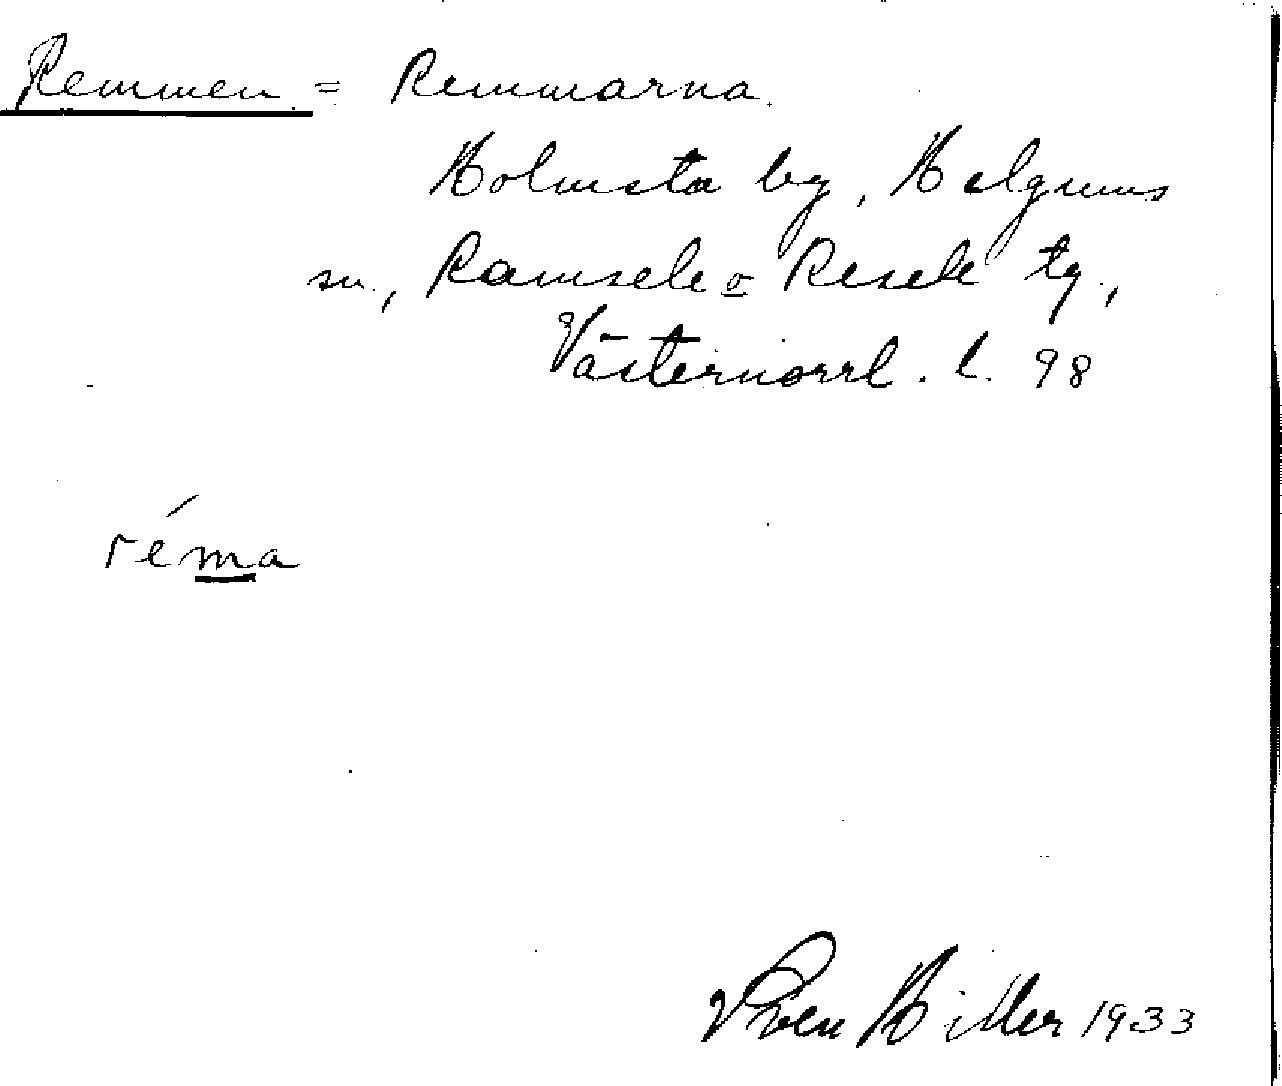 Remmen = Remmarna.
Holmsta by, Helgums
sn., Ramsele o Resele tg.,
Västernorrl. l. 98
réma
Sven Hiller 1933